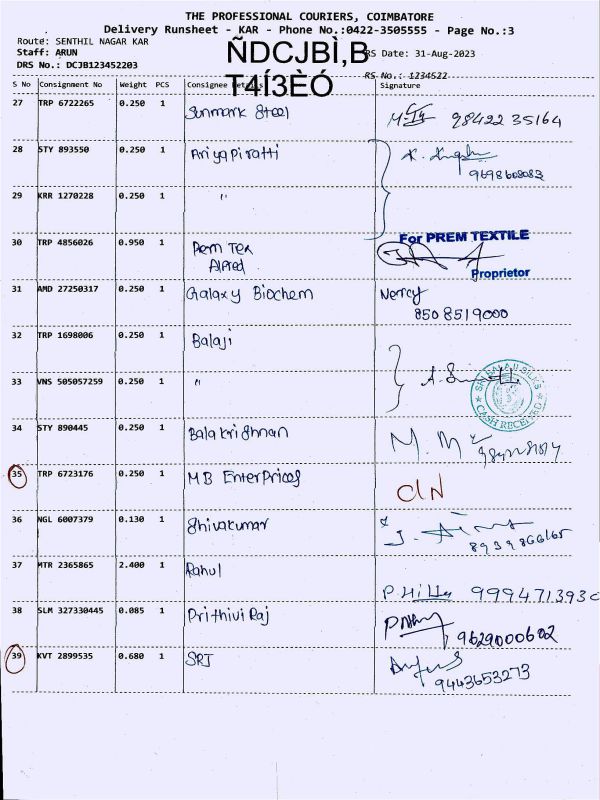 THE PROFESSIONAL COURIERS, COIMBATORE
Delivery Runsheet - KAR - Phone No.:0422-3505555 - Page No.:3
Route: SENTHIL NAGAR KAR
Staff: ARUN
DRS No.: DCJB123452203
ÑDCJBÌ,B
T4Í3ÈÓ
RS Date: 31-Aug-2023
RS No.: 1234522
S No Consignment No Weight PCS Consignee Details Signature
27 TRP 6722265 0.250 1 Sunmark Steel 98422 35164
28 STY 893550 0.250 1 Ariyapiratti
9698608083
29 KRR 1270228 0.250 1 "
30 TRP 4856026 0.950 1 Prem Tex
Alfred
For PREM TEXTILE
Proprietor
31 AMD 27250317 0.250 1 Galaxy Biochem Nercy
850 8519000
32 TRP 1698006 0.250 1 Balaji
33 VNS 505057259 0.250 1 "
SRI BALAJI SILKS
CASH RECEIVED
34 STY 890445 0.250 1 Balakrishnan
35 TRP 6723176 0.250 1 MB Enterprices CIN
36 NGL 6007379 0.130 1 Shivakumar
37 MTR 2365865 2.400 1 Rahul 999471393
38 SLM 327330445 0.085 1 Prithivi Raj
9629000602
39 KVT 2899535 0.680 1 SRJ
9443653273